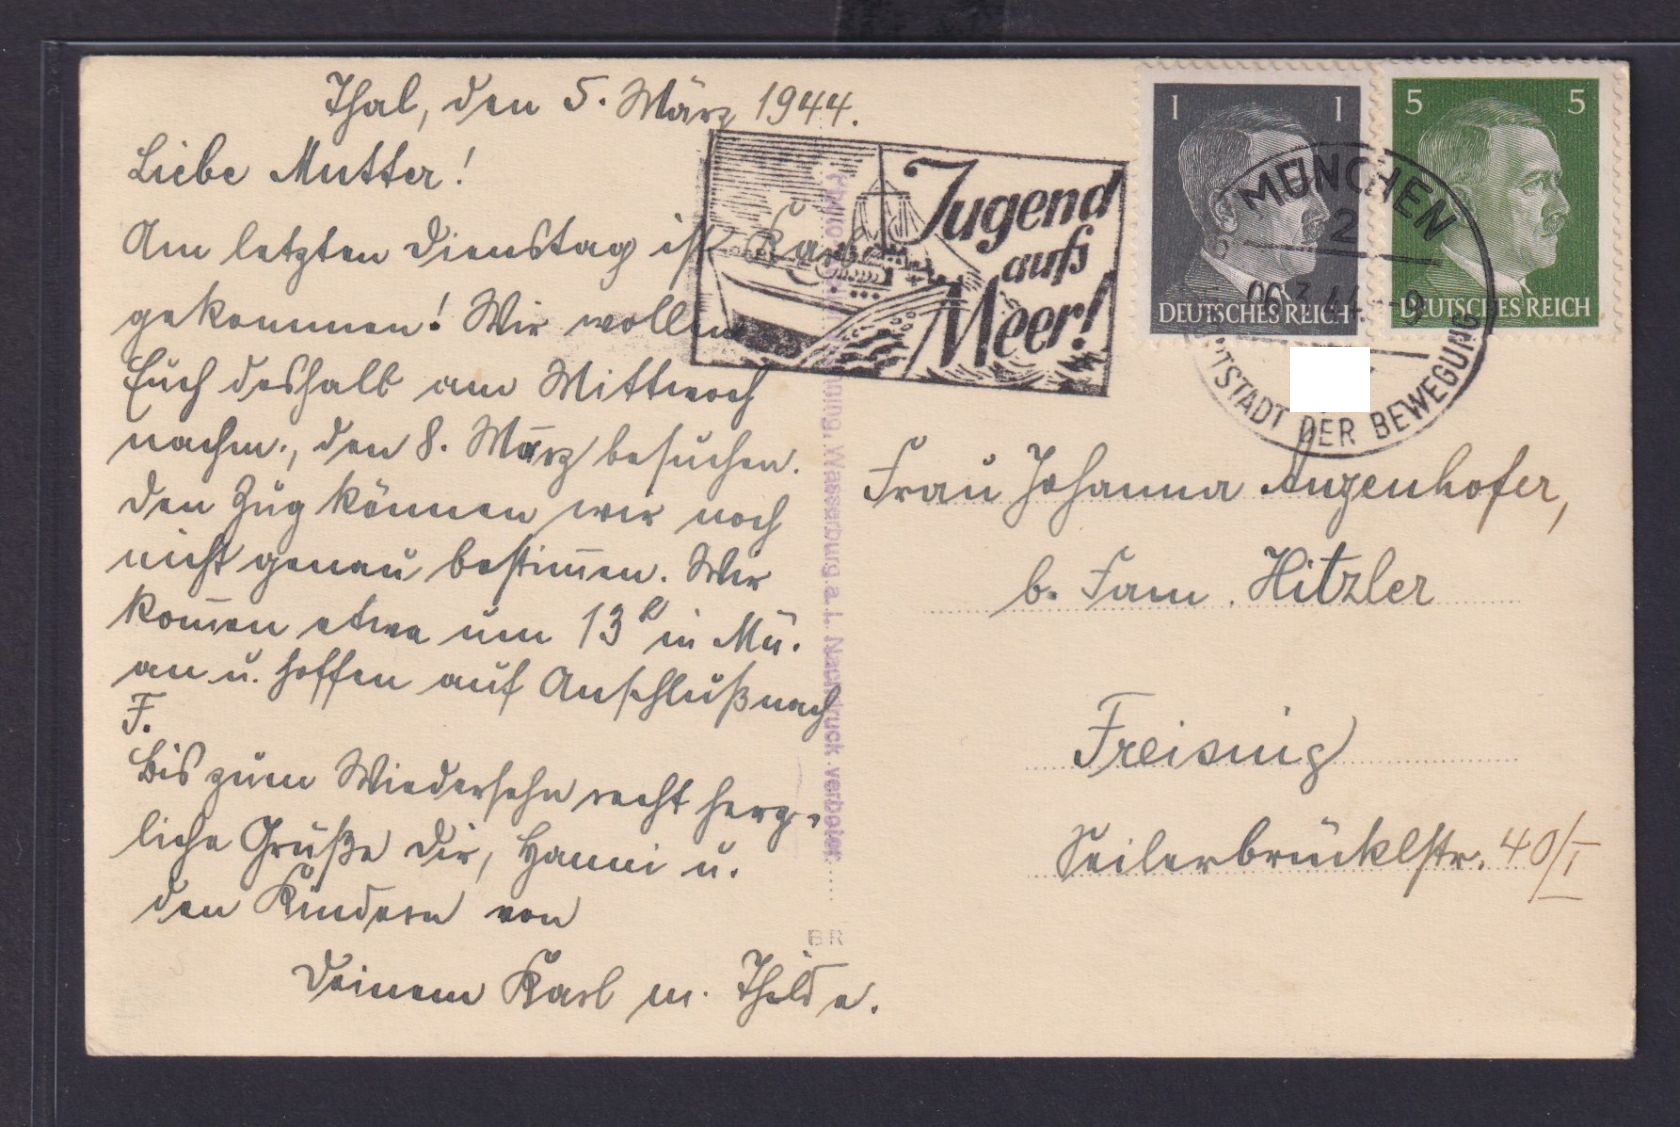 Thal, den 5. März 1944.
Liebe Mutter!
Am letzten Dienstag ist Karl
gekommen! Wir wollen
Euch deshalb am Mittwoch
nachm., den 8. März besuchen.
Den Zug können wir noch
nicht genau bestim̅en. Wir
kom̅en etwa um 13ʰ in Mü.
an u. hoffen auf Anschluß nach
F.
Bis zum Wiedersehn recht herz-
liche Grüße Dir, Hanni u.
den Kindern von
Deinem Karl m. Thilde.
Jugend
aufs
Meer!
1 1
DEUTSCHES REICH
5 5
DEUTSCHES REICH
MÜNCHEN
2
06.3.44.-9
TSTADT DER BEWEGUNG
Frau Johanna Anzenhofer,
b. Fam. Hitzler
Freising
Seilerbrücklstr. 40/I
Wasserburg a. I. Nachdruck verboten.
BR